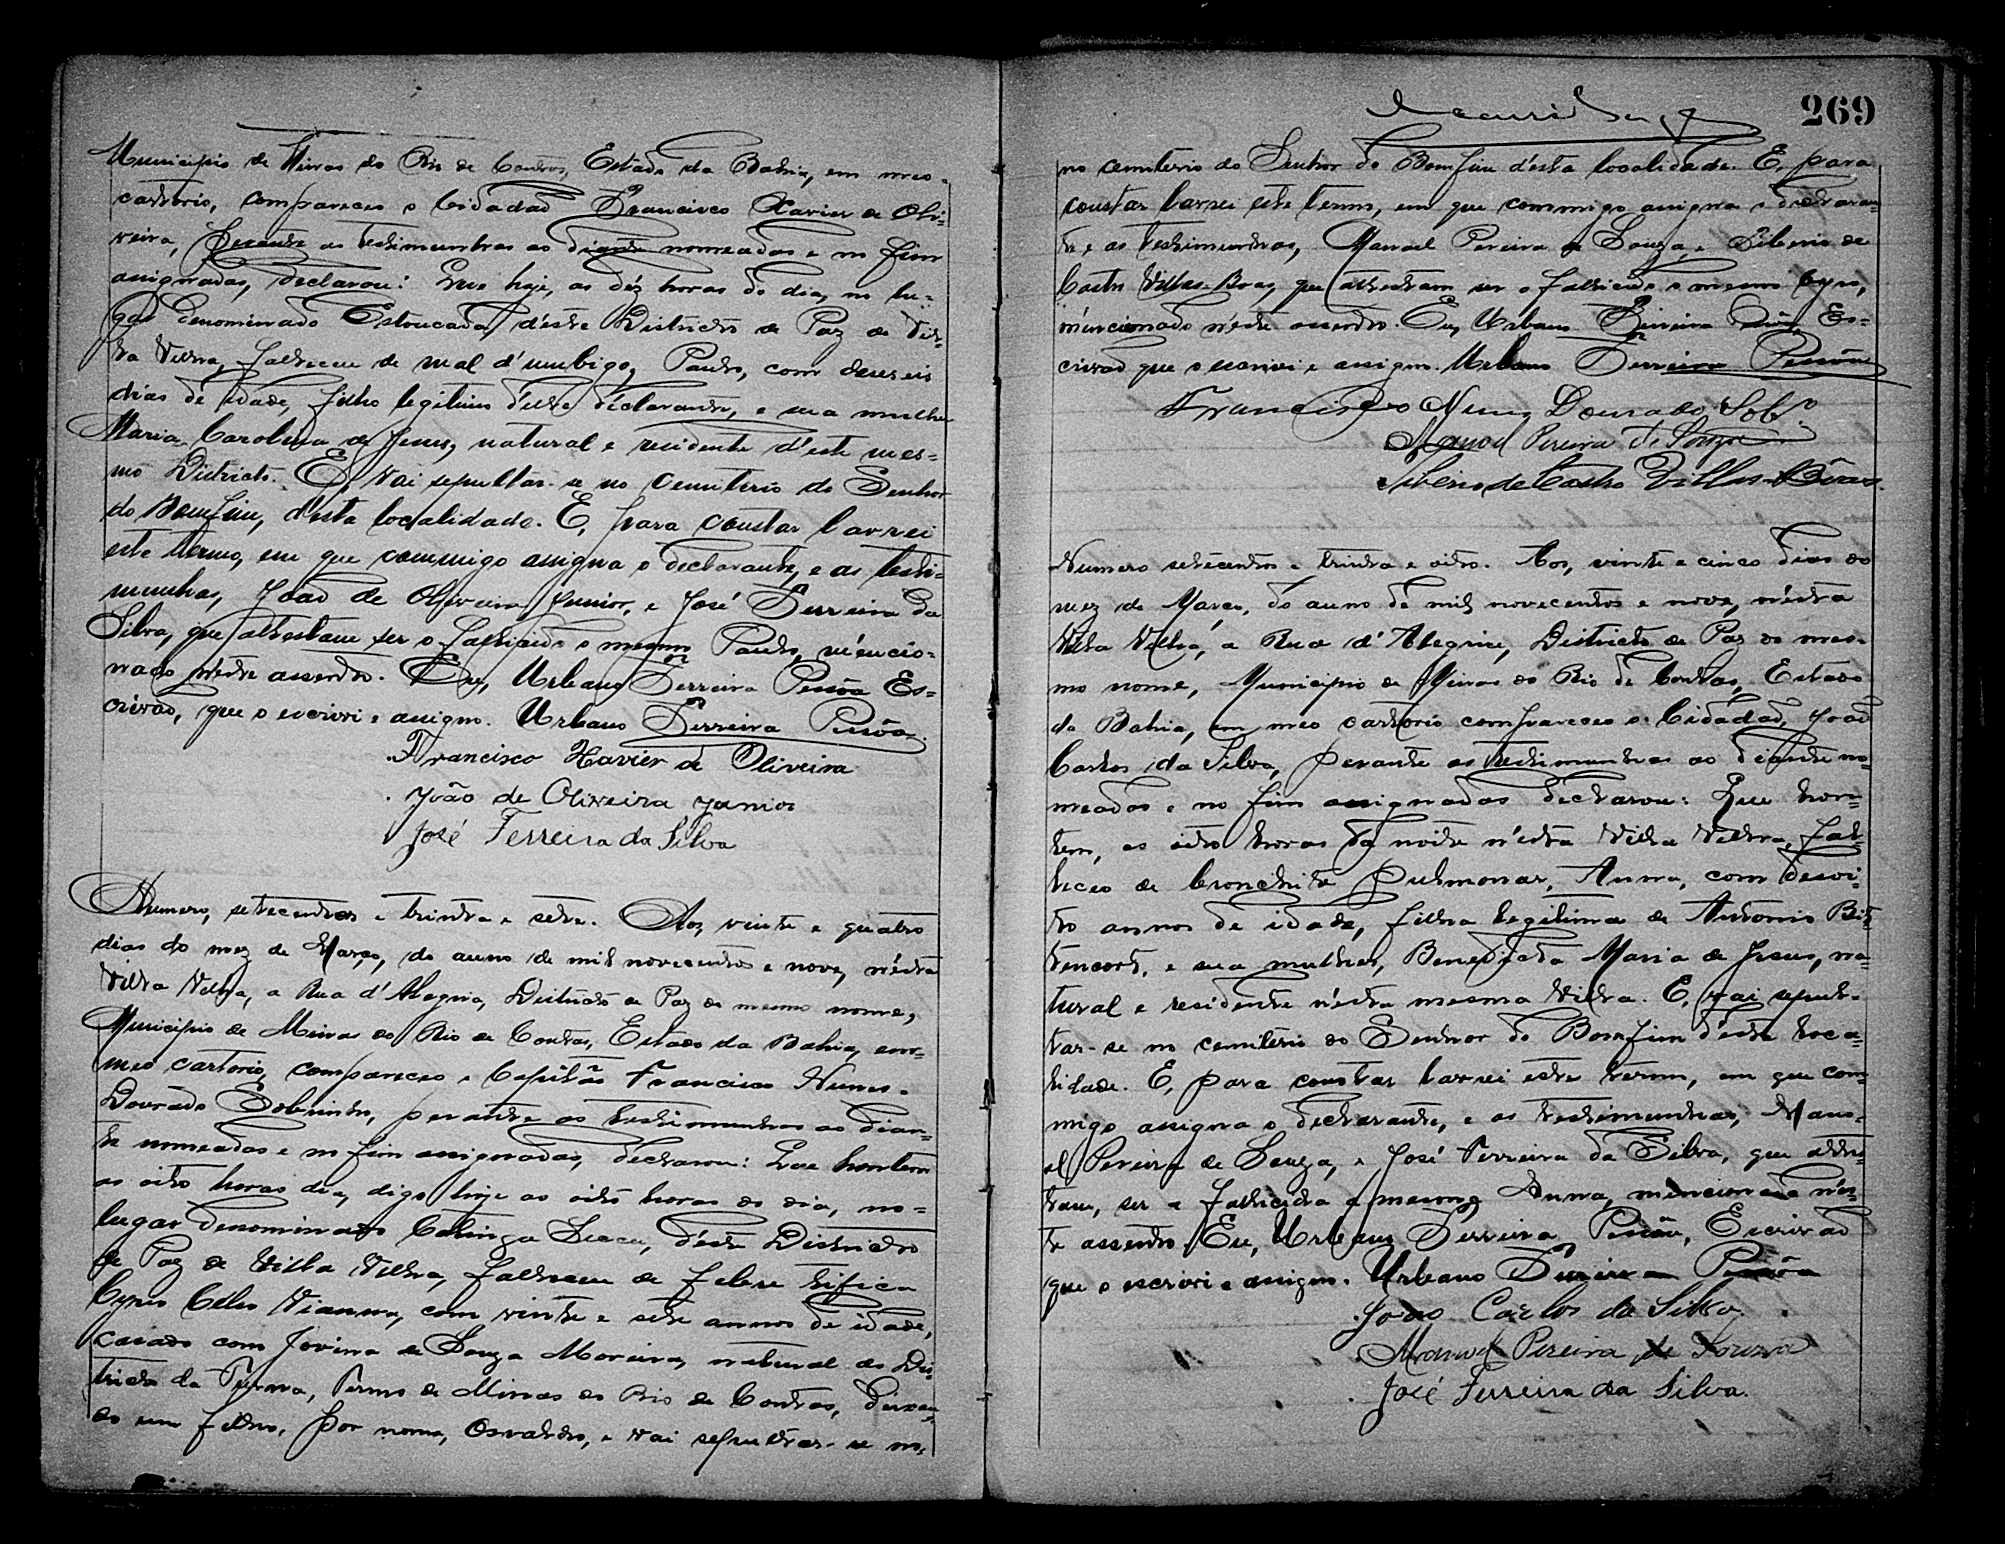 Municipio de Minas do Rio de Contas, Estado da Bahia, em meo
cartorio, compareceo o Cidadaõ Francisco Xavier de Oli-
veira, perante as testimunhas ao diante nomeadas e no fim
assignadas, declarou: Que hoje, as déz horas do dia, no lu-
gar denominado Estoucada, d'este Districto de Paz de Vil-
la Velha, falleceu de mal d'umbigo, Paulo, com deseseis
dias de idade, filho legitimo d'elle declarante, e sua mulher
Maria Carolina de Jesus, natural e residente d'este mes-
mo Districto. E, vai sepultar-se no Cemiterio do Senhor
do Bomfim, desta localidade. E, para constar lavrei
este termo, em que commigo assigna o declarante, e as testi-
munhas, Joaõ de Oliveira Junior, e José Ferreira da
Silva, que attestam ser o fallicido o mesmo Paulo, méncio-
nado néste assento. Eu, Urbano Ferreira Pessôa Es-
crivaõ, que o escrivi e assigno. Urbano Ferreira Pessôa.
Francisco Xavier de Oliveira
João de Oliveira Junior
José Ferreira da Silva
Numero, setecentos e trinta e sete. Aos, vinte e quatro
dias do mez de Março, do anno de mil novecentos e nove, nésta
Villa Velha, a Rua d'Alegria, Districto de Paz do mesmo nome,
Municipio de Minas do Rio de Contas, Estado da Bahia, em
meo cartorio, compareceo o Capitão Francisco Nunes
Dourado Sobrinho, perante as testimunhas ao dian-
te nomeadas e no fim assignadas, declarou: Que hontem
as oito horas dia, digo hoje as oito horas do dia, no
lugar denominado Catinga Secca, d'éste Districto
de Paz de Villa Velha, falleceu de febre tifica
Cyro Vianna, com vinte e sete annos de idade,
casado com Jovina de Souza Moreira, natural do Dis-
tricto da Furna, Termo de Minas do Rio de Contas, deixan-
do um filho, por nome, Osvaldo, e vai sepultar-se no
269
no cemiterio do Senhor do Bomfim d'ésta localidade. E, para
constar lavrei este termo, em que commigo assigna o declaran-
te e as testimunhas, Manoel Pereira de Souza, e Siberio de
Castro Villas-Boas, que attestam ser o fallicido o mesmo Cyro,
méncionado n'este assento. Eu, Urbano Ferreira Es-
crivaõ que o escrivi e assigno. Urbano Ferreira Pessôa
Francisco Nunes Dourado Sobº
Manoel Pereira de Souza
Siberio de Castro Villas-Bôas.
Numero setecentos e trinta e oito. Aos, vinte e cinco dias do
mez de Março, do anno de mil novecentos e nove, n'ésta
Villa Velha, a Rua d'Alegria, Districto de Paz do mes-
mo nome, Municipio de Minas do Rio de Contas, Estado
da Bahia, em meo cartorio compareceo o Cidadaõ, Joaõ
Carlos da Silva, perante as testimunhas ao diante no-
meadas e no fim assignadas declarou: Que hon-
tem, as oito horas da noite n'ésta Villa Velha, fal-
leceo de bronchite pulmonar, Anna, com desoi-
to annos de idade, filha legitima de Antonio Bit-
tencort, e sua mulher, Benedicta Maria de Jesus, na-
tural e residente n'ésta mesma Villa. E, vai sepul-
tar-se no cemiterio do Senhor do Bomfim d'ésta loca-
lidade. E, para constar lavrei este termo, em que com-
migo assigna o declarante, e as testimunhas, Mano-
el Pereira de Souza, e José Ferreira da Silva, que attes-
tam, ser a fallicida a mesma Anna, mencionada n'es-
te assento. Eu, Urbano Ferreira Pessôa, Escrivaõ
que o escrivi e assigno. Urbano Ferreira Pessôa
João Carlos da Silva
Manoel Pereira de Souza
José Ferreira da Silva.